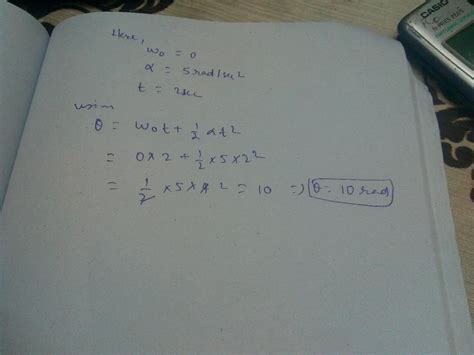 Here,
w₀ = 0
α = 5 rad/sec²
t = 2sec
using
θ = w₀t + ½ αt²
= 0×2 + ½ ×5×2²
= ½ ×5×4 2 = 10 ⇒ θ = 10 rad
CASIO